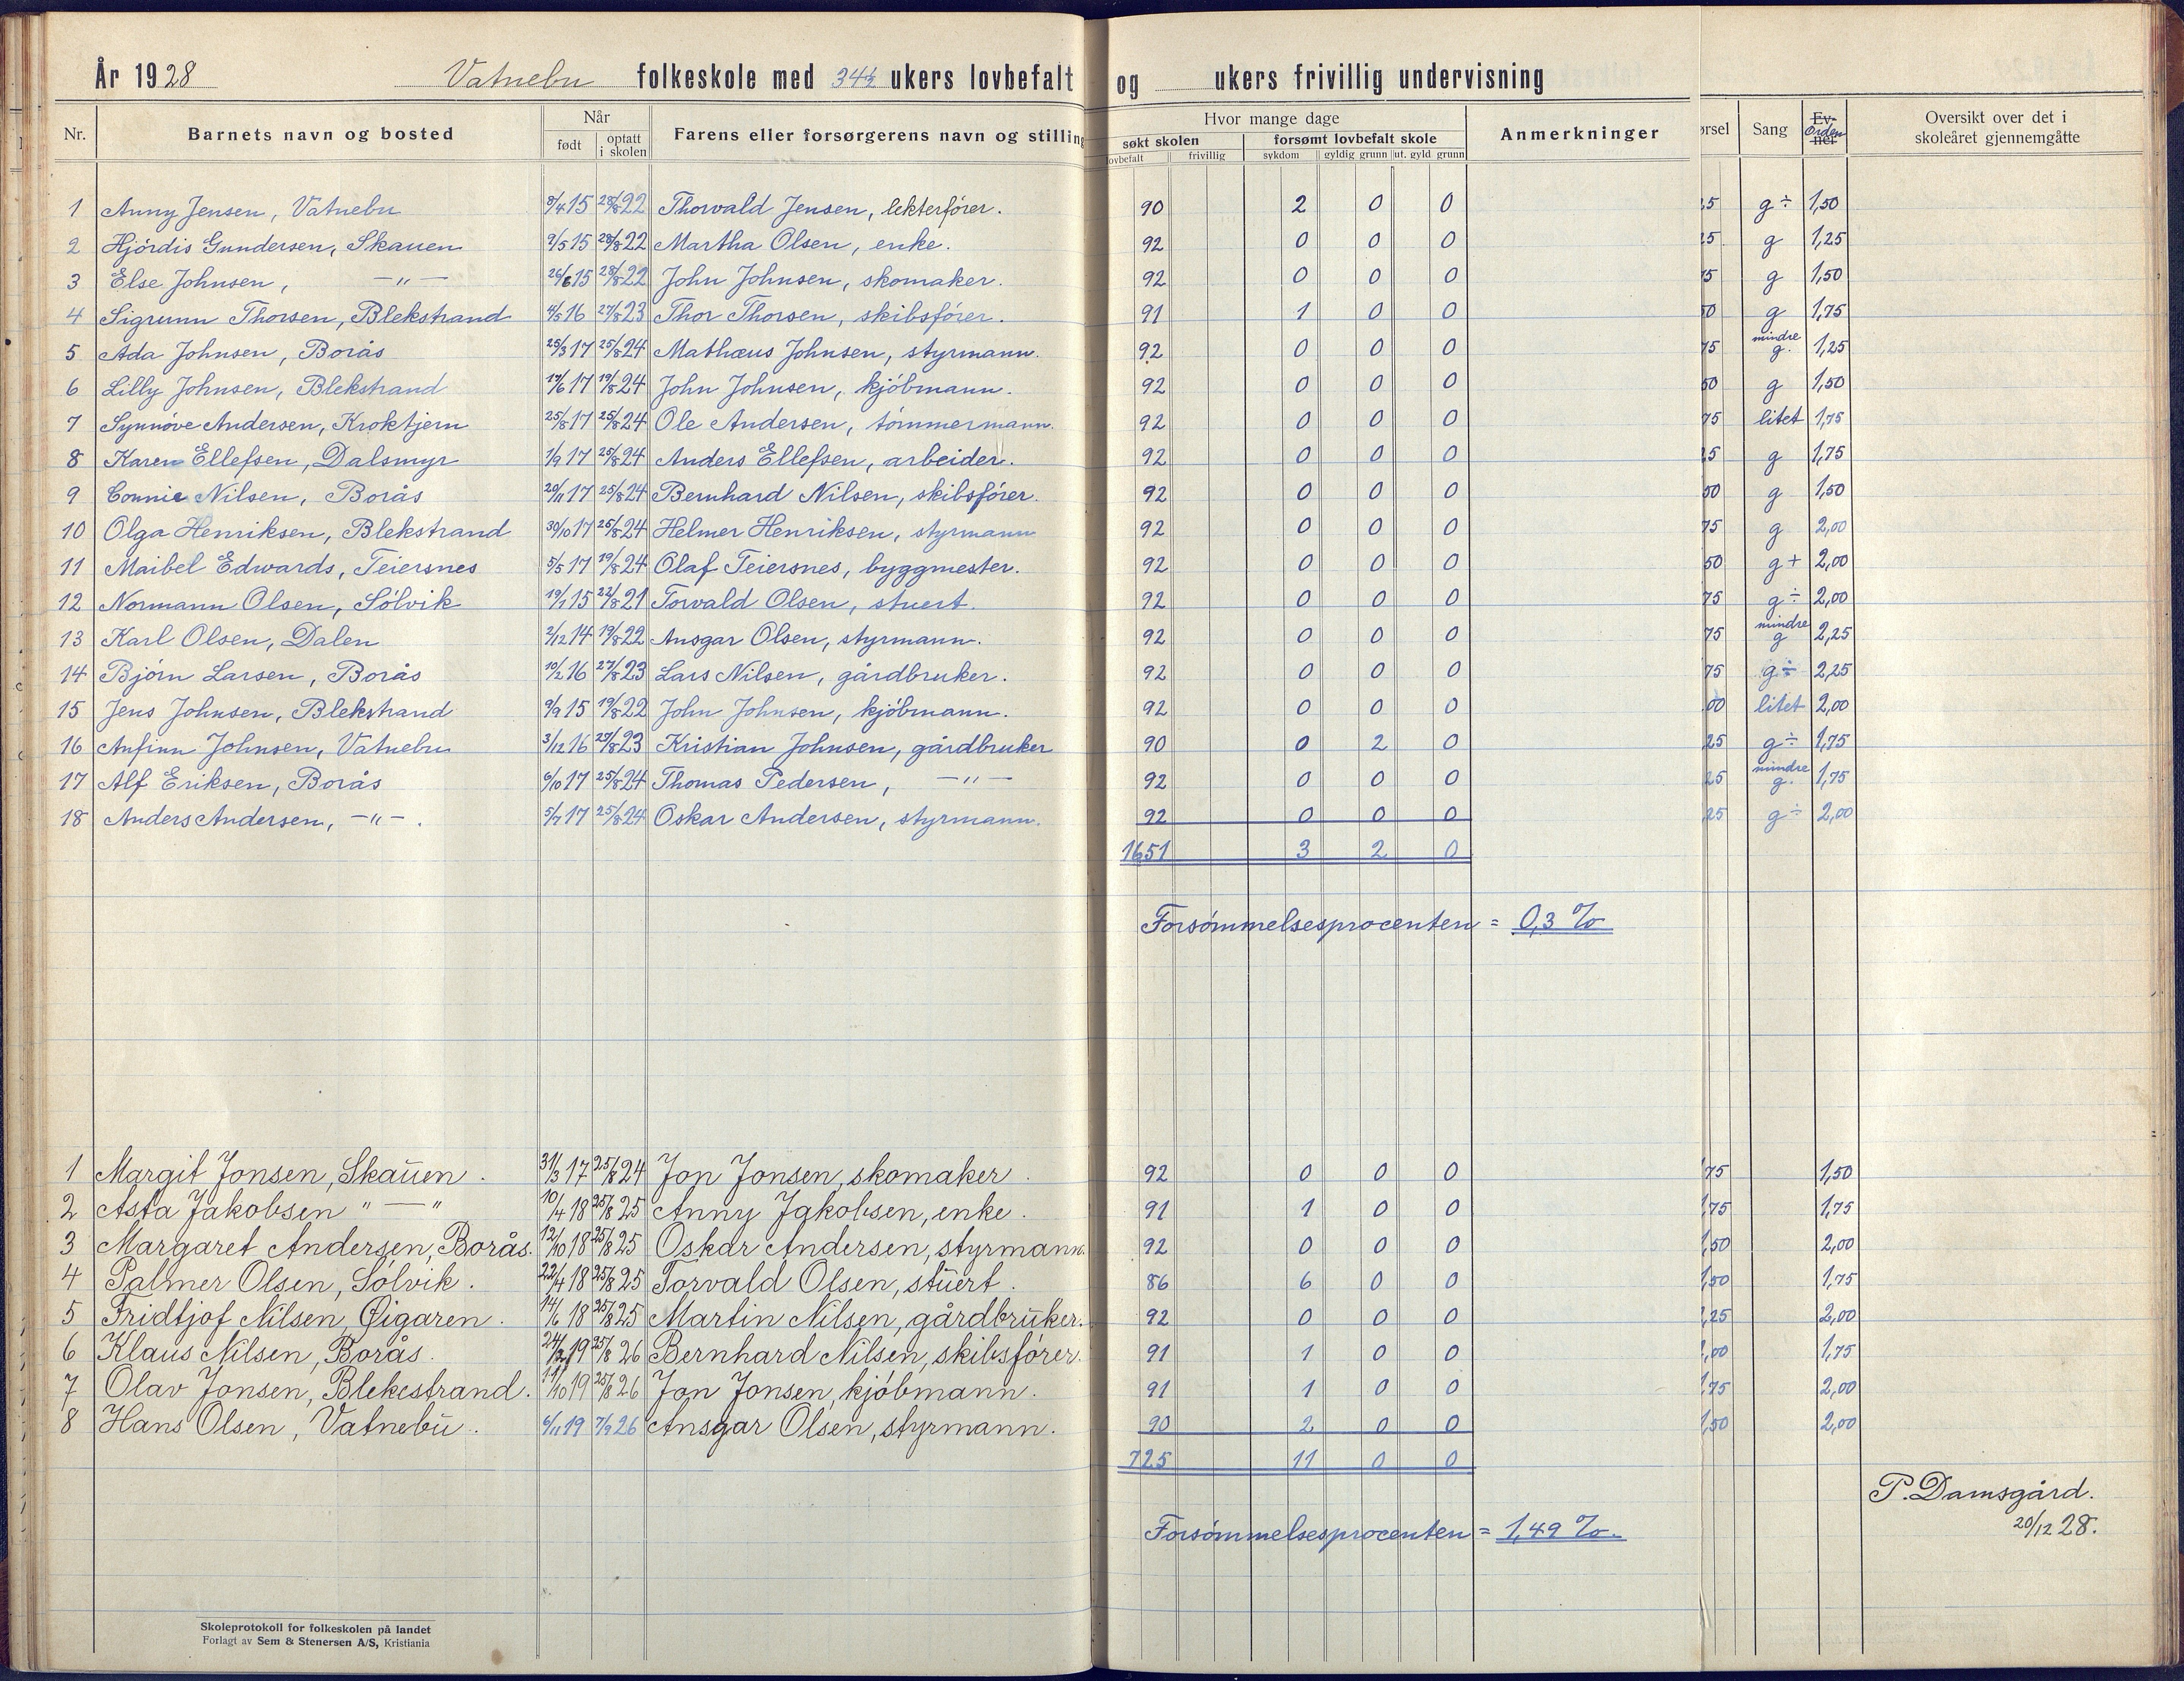 År 1928 Vatnebu folkeskole med 34½ ukers lovbefalt og ukers frivillig undervisning
Nr. Barnets navn og bosted Når født optatt i skolen Farens eller forsørgerens navn og stilling Hvor mange dage søkt skolen lovbefalt frivillig forsømt lovbefalt skole sykdom gyldig grunn ut. gyld grunn Anmerkninger ørsel Sang Ev-ner Orden Oversikt over det i skoleåret gjennemgåtte
1 Anny Jensen, Vatnebu 8/4 15 28/8 22 Thorvald Jensen, lekterfører. 90 2 0 0 25 g÷ 1,50
2 Hjördis Gundersen, Skauen 9/5 15 28/8 22 Martha Olsen, enke. 92 0 0 0 25 g 1,25
3 Else Johnsen, —"— 26/6 15 28/8 22 John Johnsen, skomaker. 92 0 0 0 75 g 1,50
4 Sigrunn Thorsen, Blekstrand 4/5 16 27/8 23 Thor Thorsen, skibsförer. 91 1 0 0 50 g 1,75
5 Ada Johnsen, Borås 25/3 17 25/8 24 Mathæus Johnsen, styrmann. 92 0 0 0 75 mindre g. 1,25
6 Lilly Johnsen, Blekstrand 17/6 17 19/8 24 John Johnsen, kjöbmann. 92 0 0 0 50 g 1,50
7 Synnöve Andersen, Kroktjern 25/8 17 25/8 24 Ole Andersen, tömmermann. 92 0 0 0 75 litet 1,75
8 Karen Ellefsen, Dalsmyr 1/9 17 25/8 24 Anders Ellefsen, arbeider. 92 0 0 0 25 g 1,75
9 Connie Nilsen, Borås 20/11 17 25/8 24 Bernhard Nilsen, skibsförer. 92 0 0 0 50 g 1,50
10 Olga Henriksen, Blekstrand 30/10 17 25/8 24 Helmer Henriksen, styrmann 92 0 0 0 75 g 2,00
11 Maibel Edwards, Teiersnes 5/5 17 19/8 24 Olaf Teiersnes, byggmester. 92 0 0 0 50 g+ 2,00
12 Normann Olsen, Sölvik 19/1 15 22/8 21 Torvald Olsen, stuert. 92 0 0 0 75 g÷ 2,00
13 Karl Olsen, Dalen 2/12 14 19/8 22 Ansgar Olsen, styrmann. 92 0 0 0 75 mindre g 2,25
14 Björn Larsen, Borås 10/2 16 27/8 23 Lars Nilsen, gårdbruker. 92 0 0 0 75 g÷ 2,25
15 Jens Johnsen, Blekstrand 9/9 15 19/8 22 John Johnsen, kjöbmann. 92 0 0 0 00 litet 2,00
16 Anfinn Johnsen, Vatnebu 3/12 16 29/8 23 Kristian Johnsen, gårdbruker 90 0 2 0 25 g÷ 1,75
17 Alf Eriksen, Borås 6/10 17 25/8 24 Thomas Pedersen, —"— 92 0 0 0 25 mindre g. 1,75
18 Anders Andersen, —"—. 5/7 17 25/8 24 Oskar Andersen, styrmann. 92 0 0 0 25 g÷ 2,00
1651 3 2 0
Forsömmelsesprocenten = 0,3 %
1 Margit Jonsen, Skauen. 31/3 17 25/8 24 Jon Jonsen, skomaker. 92 0 0 0 75 1,50
2 Asta Jakobsen "—" 10/4 18 25/8 25 Anny Jakobsen, enke. 91 1 0 0 75 1,75
3 Margaret Andersen, Borås. 12/10 18 25/8 25 Oskar Andersen, styrmann. 92 0 0 0 50 2,00
4 Palmer Olsen, Sölvik. 22/4 18 25/8 25 Torvald Olsen, stuert. 86 6 0 0 50 1,75
5 Fridtjof Nilsen, Øigaren. 14/6 18 25/8 25 Martin Nilsen, gårdbruker. 92 0 0 0 25 2,00
6 Klaus Nilsen, Borås. 24/2 19 25/8 26 Bernhard Nilsen, skibsförer. 91 1 0 0 00 1,75
7 Olav Jonsen, Blekestrand. 11/10 19 25/8 26 Jon Jonsen, kjöbmann. 91 1 0 0 75 2,00
8 Hans Olsen, Vatnebu. 6/11 19 7/9 26 Ansgar Olsen, styrmann. 90 2 0 0 50 2,00
725 11 0 0
P. Damsgård.
20/12 28.
Forsömmelsesprocenten = 1,49 %.
Skoleprotokoll for folkeskolen på landet
Forlagt av Sem & Stenersen A/S, Kristiania